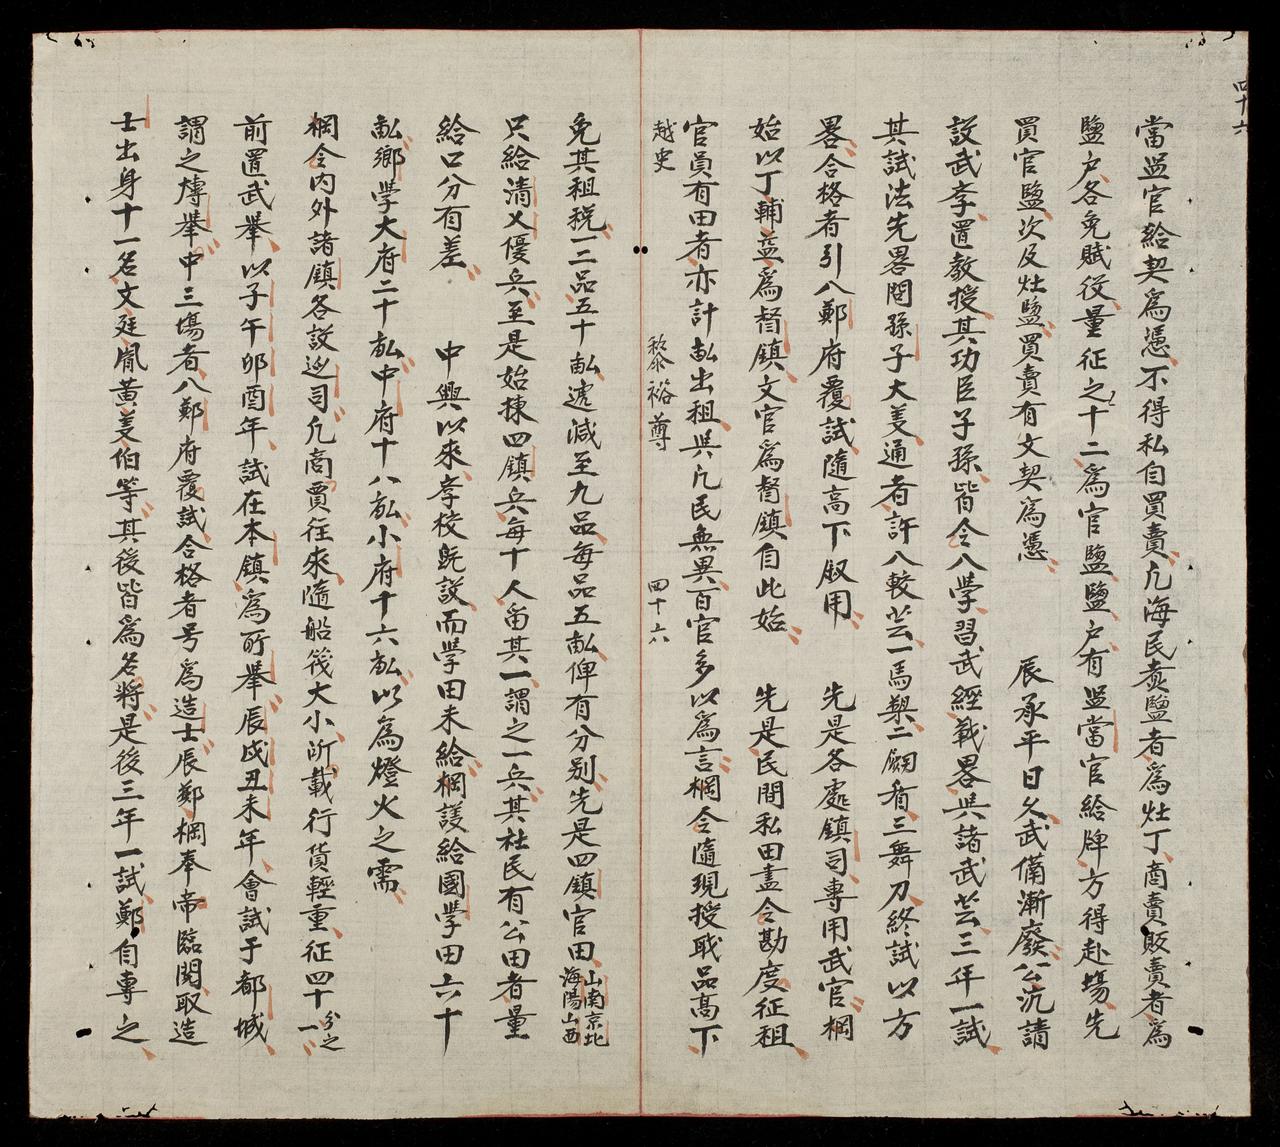 四十六
當盐官給契爲憑不得私自買賣凡海民煑鹽者爲灶丁商賣販賣者爲
鹽户各免賦役量征之十二爲官鹽鹽户有盐當官給牌方得赴場先
買官鹽次及灶鹽買賣有文契爲憑 辰承平日久武備漸廢公沆請
設武李置教授其功臣子孫皆令入學習武經戰畧吳諸武芸三年一試
其試法先畧問孫子大義通者許入較芸一馬槊二劒盾三舞刀終試以方
畧合格者引入鄭府覆試隨高下叙用 先是各處鎮司專用武官棡
始以丁輔益爲督鎮文官爲督鎮自此始 先是民間私田盡令勘度征租
官員有田者亦計畝出租吳凡民無異百官多以爲言棡令隨現授职品髙下
越史 黎裕尊 四十六
免其租税一二品五十畝遞减至九品每品五畝俾有分别先是四鎮官田山南京北海陽山西
只給清乂優兵至是始揀四鎮兵每十人畄其一謂之一兵其社民有公田者量
給口分有差 中興以來李校既設而學田未給棡議給國學田六十
畝鄉學大府二十畝中府十八畝小府十六畝以爲燈火之需
棡令内外諸鎮各設巡司凡商賈往來隨船筏大小所載行貨輕重征四十分之一
前置武舉以子午卯酉年試在本鎮爲所舉辰戌丑未年會試于都城
謂之博舉中三塲者入鄭府覆試合格者号爲造士辰鄭棡奉帝臨閲取造
士出身十一名文廷胤黄羙伯等其後皆爲名將是後三年一試鄭自專之